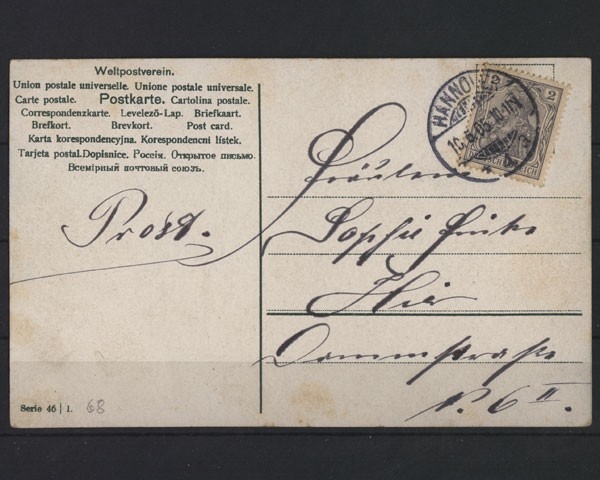 Weltpostverein.
Union postale universelle. Unione postale universale.
Carte postale. Postkarte. Cartolina postale.
Correspondenzkarte. Levelező-Lap. Briefkaart.
Brefkort. Brevkort. Post card.
Karta korespondencyjna. Korespondencni lístek.
Tarjeta postal. Dopisnice. Россія. Открытое письмо.
Всемірный почтовый союзъ.
Prost.
HANNOVER
2
Fräulein
Sophie
Hier
N. 6 II.
Serie 46 | 1. 68